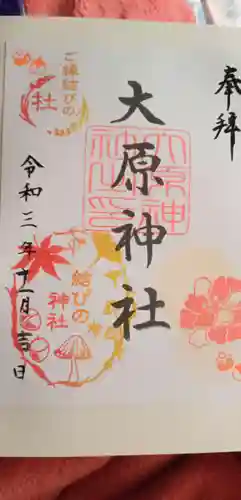 奉拝
大原神社
令和三年十一月吉日
ご縁結びの
社
結びの
神社